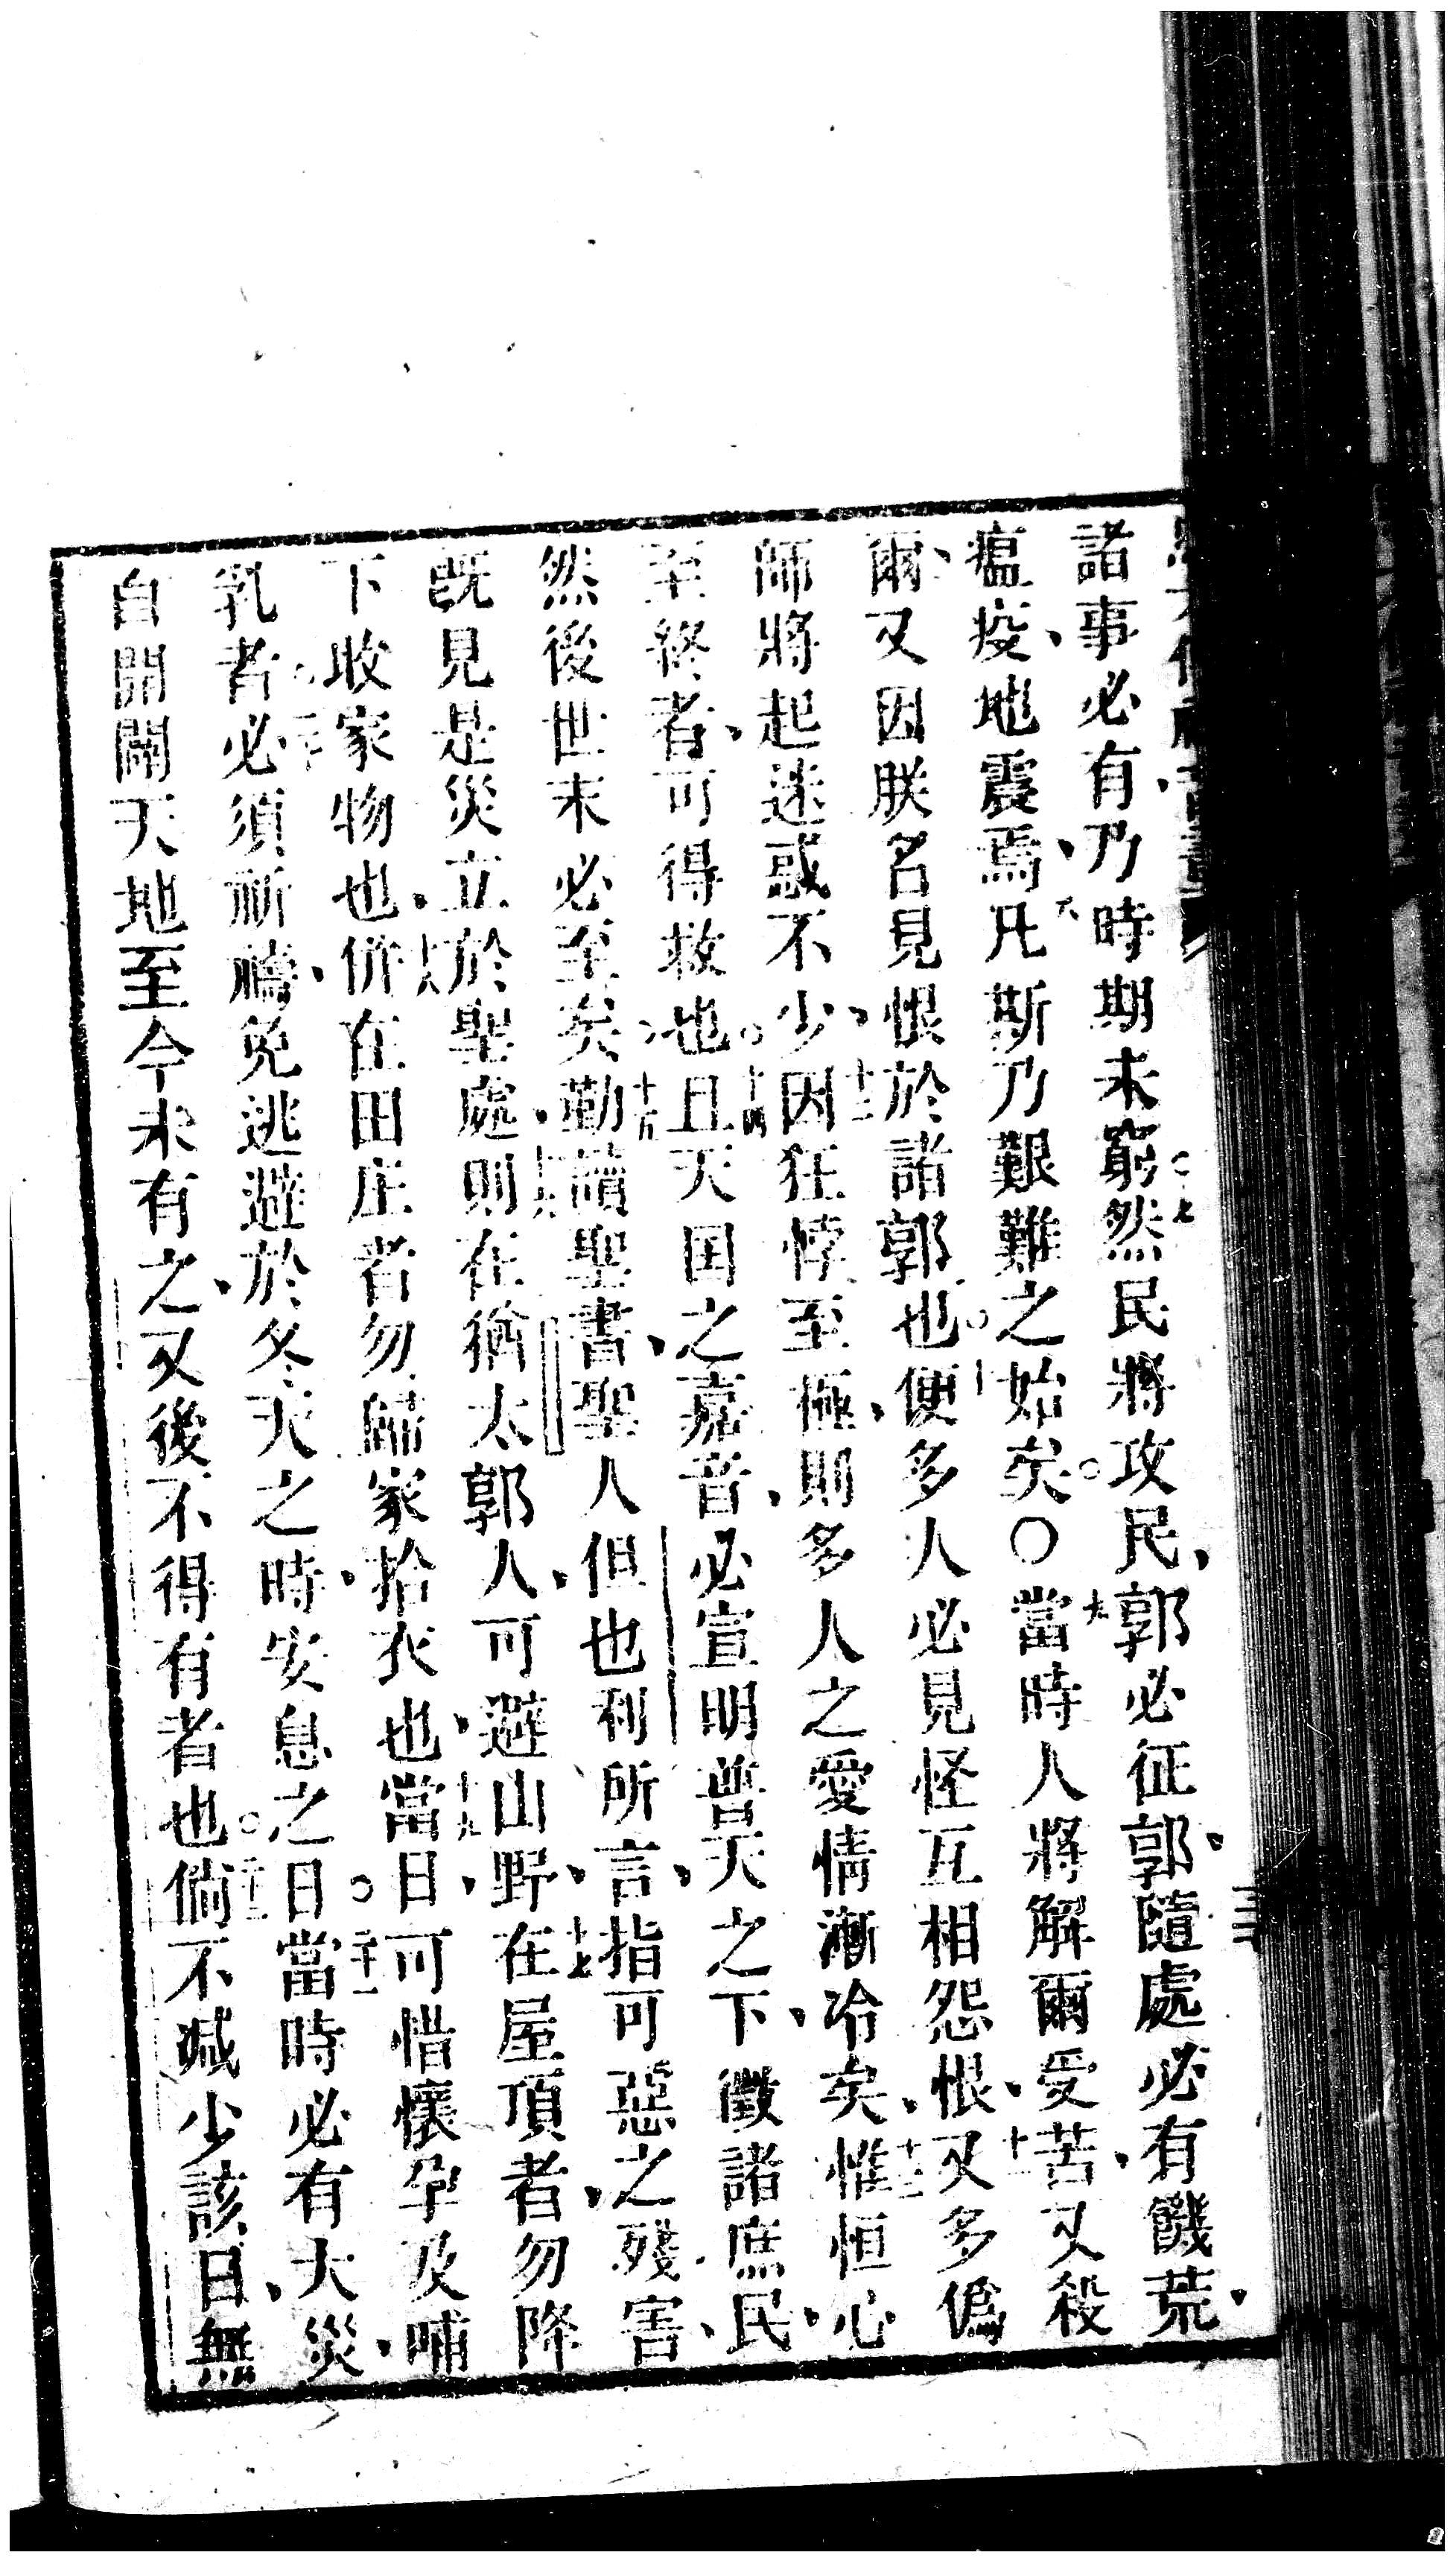 諸事必有、乃時期未窮。七然民將攻民、郭必征郭、隨處必有饑荒、
瘟疫、地震焉、八凡斯乃艱難之始矣。〇九當時人將解爾受苦、又殺
爾、又因朕名見恨於諸郭也。十便多人必見怪互相怨恨、十一又多偽
師將起迷惑不少、十二因狂悖至極、則多人之愛情漸冷矣、十三惟恒心
至終者、可得救也。十四且天国之嘉音、必宣明普天之下、徵諸庶民、
然後世末必至矣、十五勤讀聖書、聖人但也利所言、指可惡之殘害、
既見是災立於聖處、十六則在猶太郭人、可避山野、十七在屋頂者、勿降
下收家物也、十八併在田庄者勿歸家拾衣也、十九當日、可惜懷孕及哺
乳者。二十必須祈禱、免逃避於冬天之時、安息之日。二十一當時必有大災、
自開闢天地至今未有之、又後不得有者也。二十二倘不減少該日、無
三三